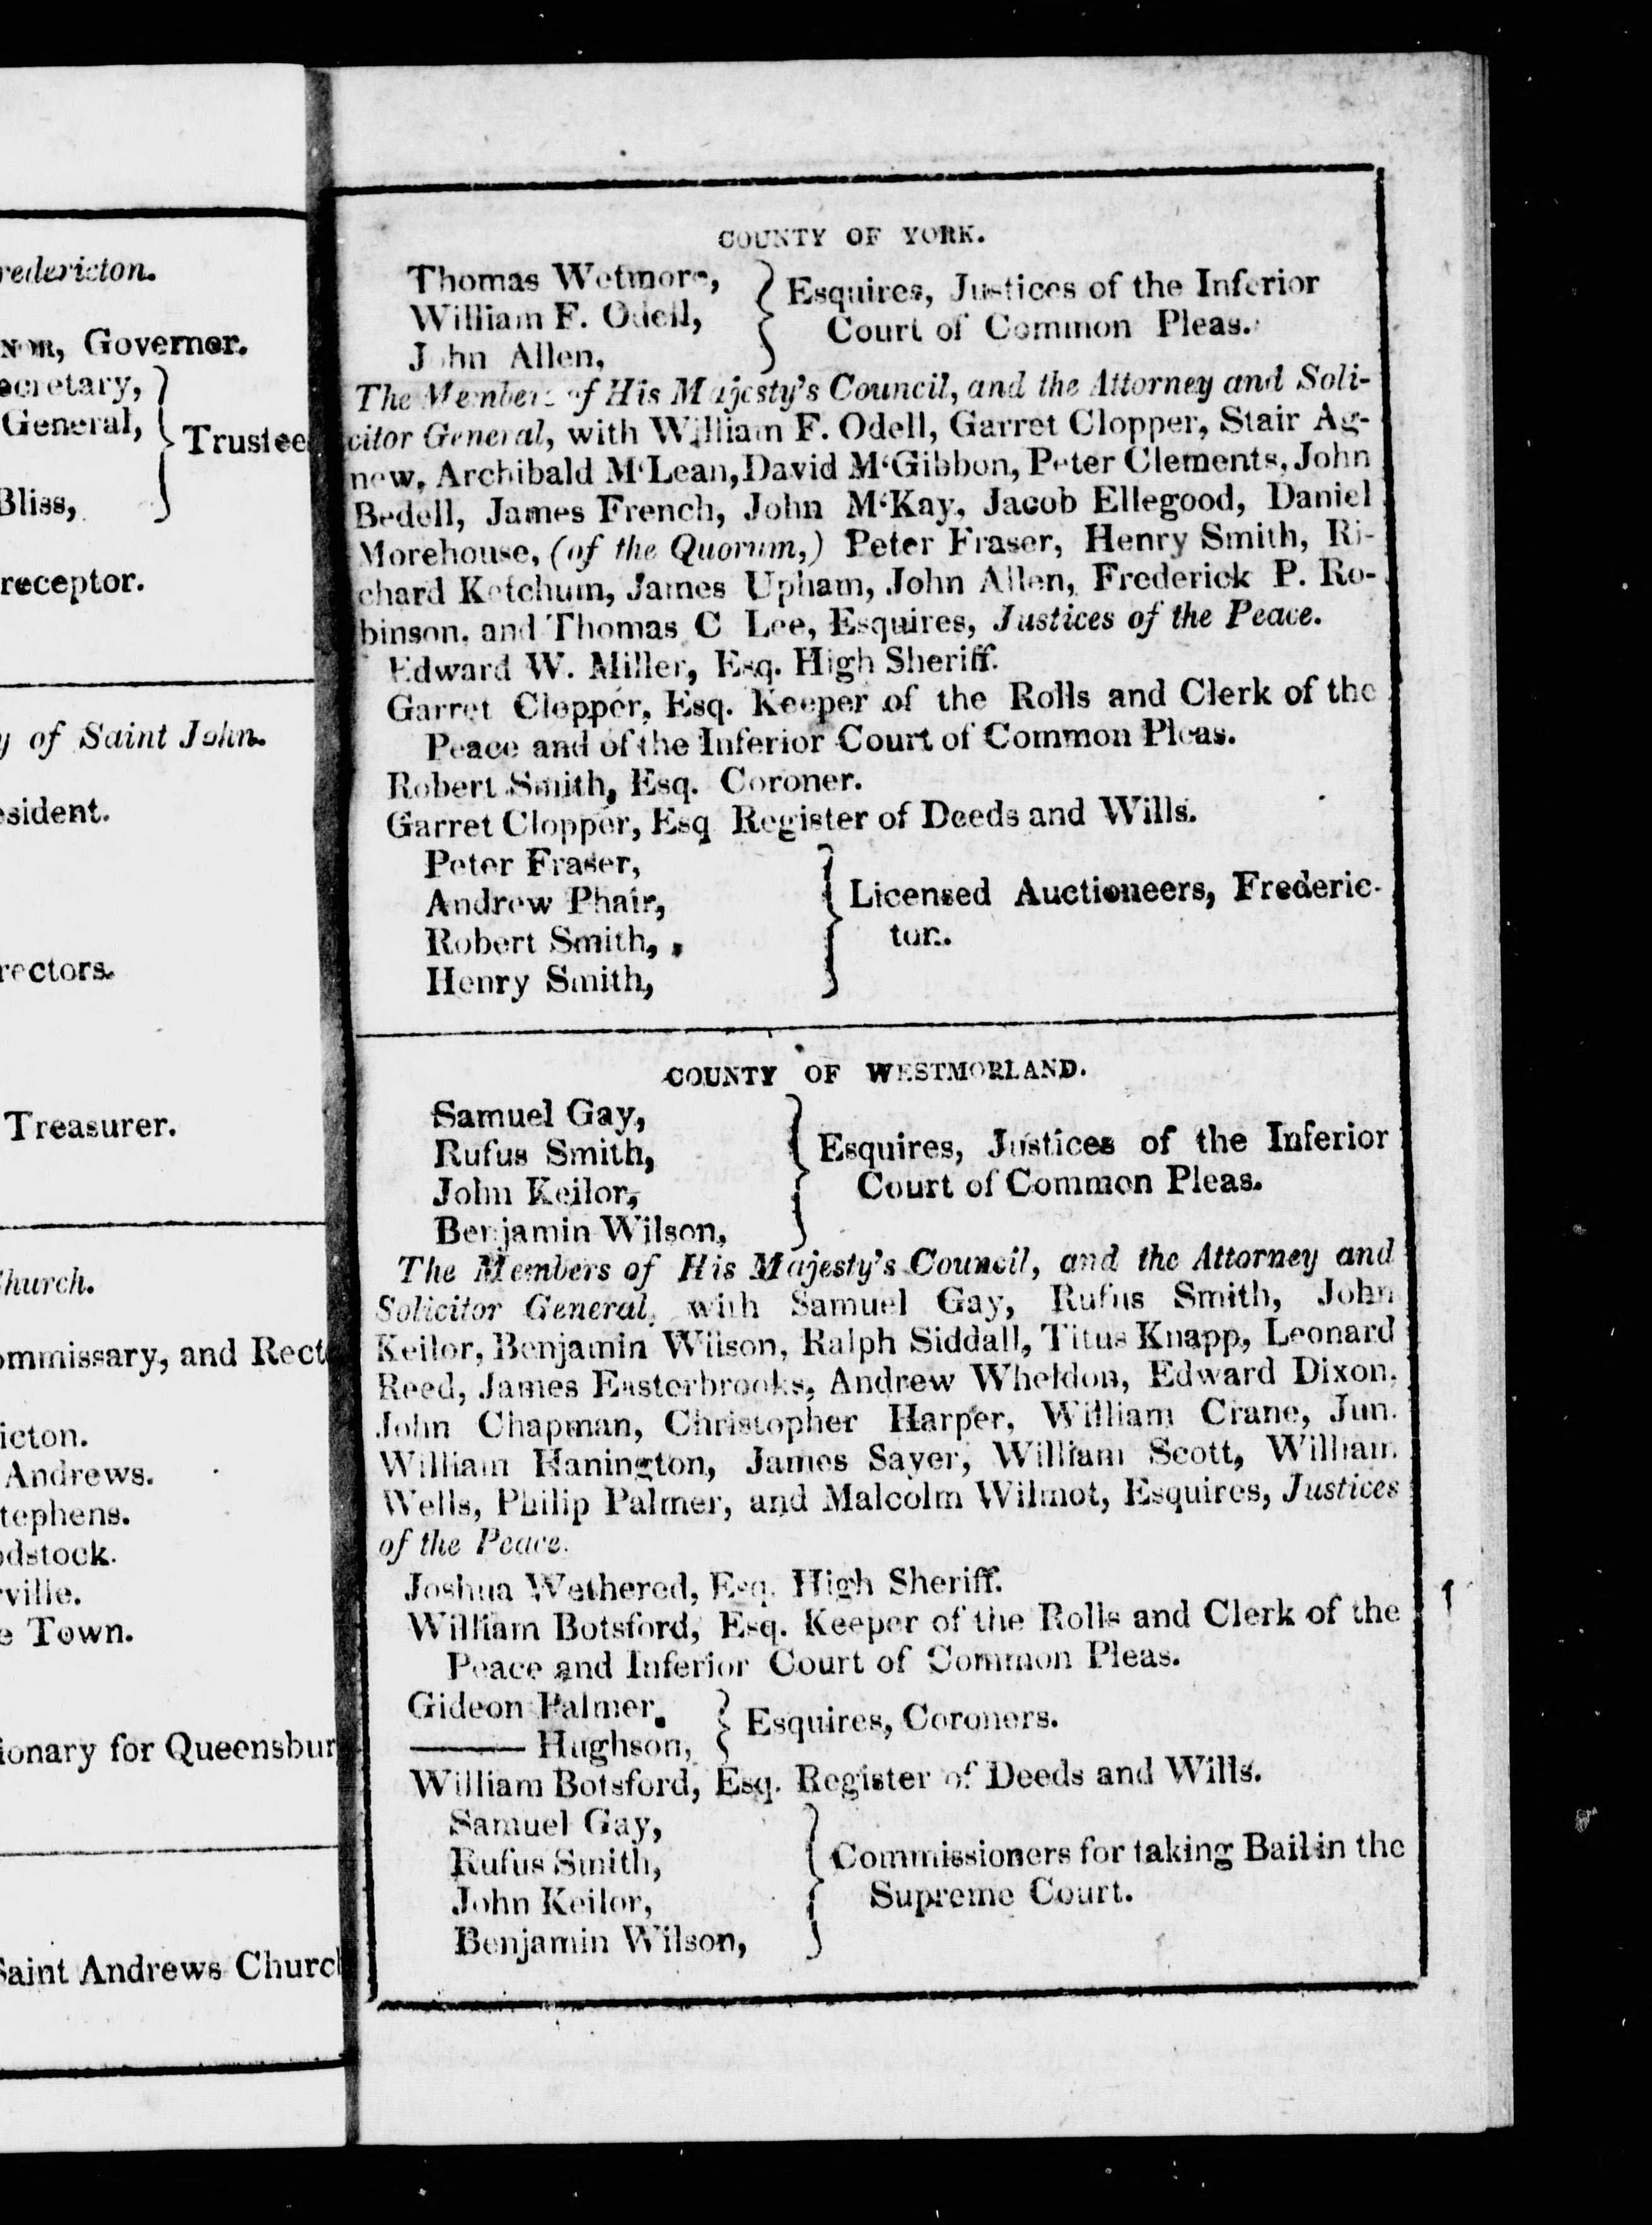 redericton.
NOR, Governor.
ecretary,
General,
Trustee
Bliss,
receptor.
y of Saint John.
esident.
rectors.
Treasurer.
Church.
ommissary, and Rect
icton.
Andrews.
tephens.
odstock.
rville.
e Town.
ionary for Queensbur
Saint Andrews Churcl
COUNTY OF YORK.
Thomas Wetmore,
William F. Odell,
John Allen,
Esquires, Justices of the Inferior
Court of Common Pleas.
The Members of His Majesty's Council, and the Attorney and Soli-
citor General, with William F. Odell, Garret Clopper, Stair Ag-
new, Archibald M'Lean, David M'Gibbon, Peter Clements, John
Bedell, James French, John M'Kay, Jacob Ellegood, Daniel
Morehouse, (of the Quorum,) Peter Fraser, Henry Smith, Ri-
chard Ketchum, James Upham, John Allen, Frederick P. Ro-
binson, and Thomas C Lee, Esquires, Justices of the Peace.
Edward W. Miller, Esq. High Sheriff.
Garret Clopper, Esq. Keeper of the Rolls and Clerk of the
Peace and of the Inferior Court of Common Pleas.
Robert Smith, Esq. Coroner.
Garret Clopper, Esq Register of Deeds and Wills.
Peter Fraser,
Andrew Phair,
Robert Smith,
Henry Smith,
Licensed Auctioneers, Frederic-
ton.
COUNTY OF WESTMORLAND.
Samuel Gay,
Rufus Smith,
John Keilor,
Benjamin Wilson,
Esquires, Justices of the Inferior
Court of Common Pleas.
The Members of His Majesty's Council, and the Attorney and
Solicitor General, with Samuel Gay, Rufus Smith, John
Keilor, Benjamin Wilson, Ralph Siddall, Titus Knapp, Leonard
Reed, James Easterbrooks, Andrew Wheldon, Edward Dixon,
John Chapman, Christopher Harper, William Crane, Jun.
William Hanington, James Sayer, William Scott, William
Wells, Philip Palmer, and Malcolm Wilmot, Esquires, Justices
of the Peace.
Joshua Wethered, Esq. High Sheriff.
William Botsford, Esq. Keeper of the Rolls and Clerk of the
Peace and Inferior Court of Common Pleas.
Gideon Palmer,
——— Hughson,
Esquires, Coroners.
William Botsford, Esq. Register of Deeds and Wills.
Samuel Gay,
Rufus Smith,
John Keilor,
Benjamin Wilson,
Commissioners for taking Bail in the
Supreme Court.